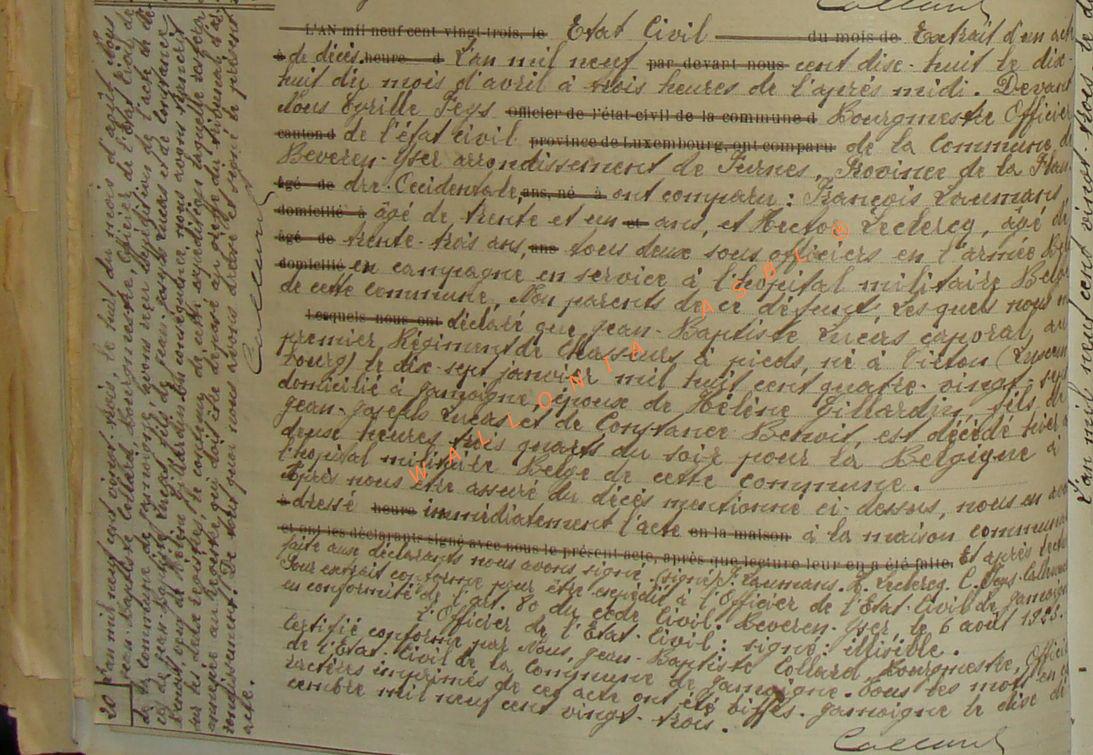 Collard
L'AN mil neuf cent vingt-trois, le Etat Civil du mois de Extrait d'un acte
à de décès. heure d L'an mil neuf par devant nous cent dix-huit le dix-
huit du mois d'avril à trois heures de l'après midi. Devant
Nous Cyrille Feys Officier de l'état civil de la commune d Bourgmestre Officier
canton d de l'état civil province de Luxembourg, ont comparu de la Commune de
Beveren-Yser arrondissement de Furnes, Province de la Flan-
âgé de dre-Occidentale, ans, né à ont comparu: François Laumans,
domicilié à âgé de trente et un et ans, et Hector Leclercq, âgé de
âgé de trente-trois ans, ans tous deux sous officiers en l'armée Belge
domicilié en campagne en service à l'hopital militaire Belge
de cette commune, Non parents de ce défunt, Lesquels nous
Lesquels nous ont déclaré que Jean-Baptiste Lucas caporal, au
premier Régiment de Chasseurs à pieds, né à Virton (Luxem
bourg) le dix-sept janvier mil huit cent quatre-vingt-sept
domicilié à Jamoigne, époux de Hélène Gillardin, fils de
Jean-Joseph Lucas et de Constance Benoit, est décédé hier à
deux heures trois quarts du soir pour la Belgique à
l'hopital militaire Belge de cette commune.
Après nous être assuré du décès mentionné ci-dessus, nous en avons
dressé heure immédiatement l'acte en la maison à la maison communale
et ont les déclarants signé avec nous le présent acte, après que lecture leur en a été faite. Et après lecture
faite aux déclarants nous avons signé. (signé) F. Laumans. H. Leclercq. C. Feys.
Pour extrait conforme pour être expédié à l'Officier de l'Etat-Civil de Jamoigne
en conformité de l'art. 80 du code Civil. Beveren-Yser, le 6 août 1923.
L'Officier de l'Etat-Civil: signé: illisible.
Certifié conforme par Nous, Jean-Baptiste Collard Bourgmestre, Officier
de l'Etat-Civil de la Commune de Jamoigne. Tous les mots en ca-
ractères imprimés de cet acte ont été biffés. Jamoigne le dix dé
cembre mil neuf cent vingt-trois.
Collard
20
L'an mil neuf cent vingt-trois, le huit du mois d'août Nous
Jean-Baptiste Collard, Bourgmestre, Officier de l'Etat Civil de
la commune de Jamoigne, avons reçu expédition de l'acte de dé-
cès de Jean-Baptiste Lucas, fils de Jean-Joseph Lucas et de Constance
Benoit époux de Hélène Gillardin. En conséquence nous avons transcrit
sur les deux registres, le contenu de cette expédition laquelle restera
annexée au registre qui doit être déposé au greffe du tribunal d'ar-
rondissement. De tout quoi nous avons dressé et signé le présent
acte.
Collard
WALLONIA ASBL ©
L'an mil neuf cent vingt-trois, le